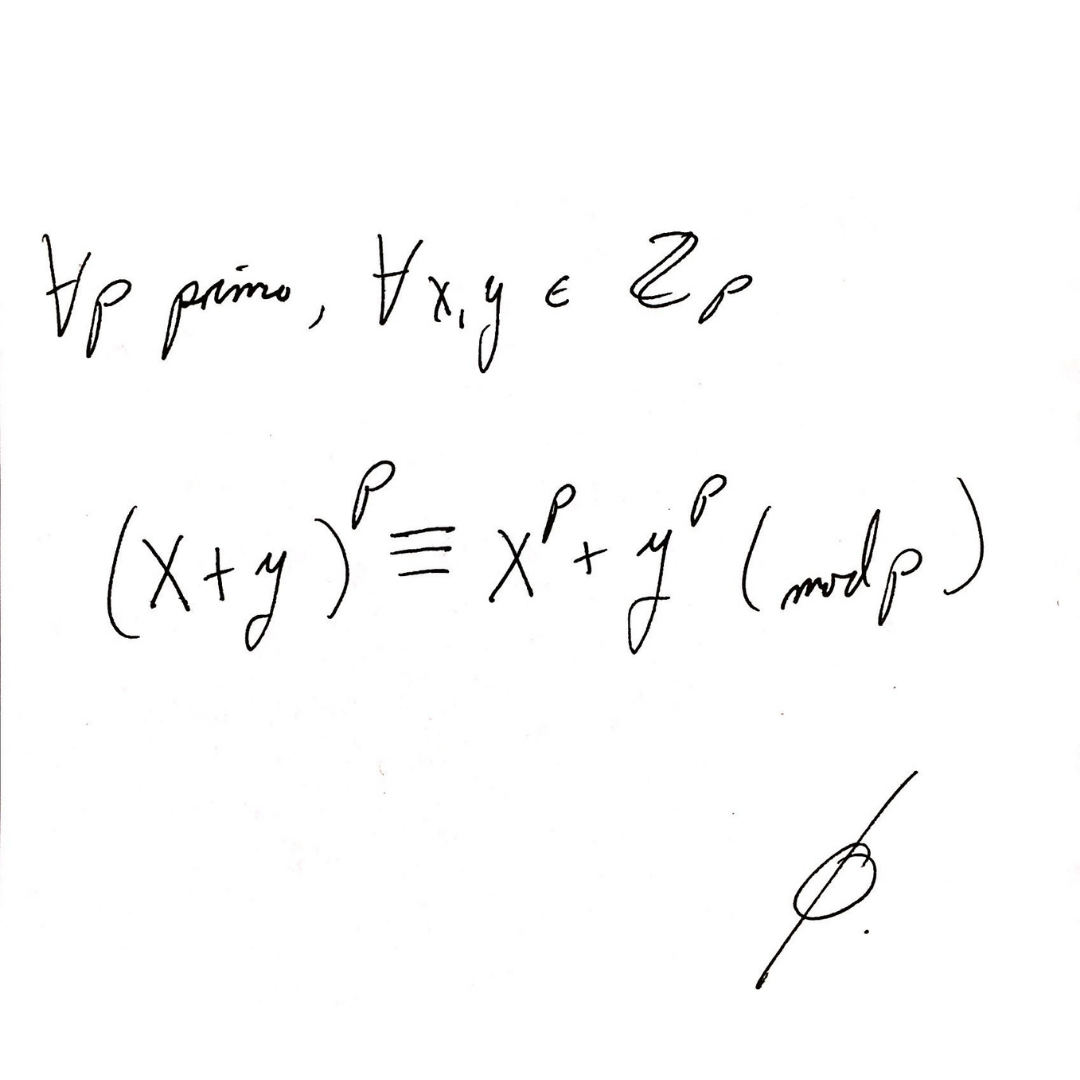 ∀p primo, ∀x,y ∈ ℤₚ
(x+y)ᵖ ≡ xᵖ + yᵖ (mod p)
∅.